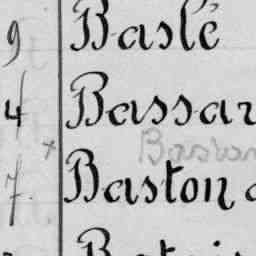 9 Baslé
4 Bassar
Baston
7. Baston